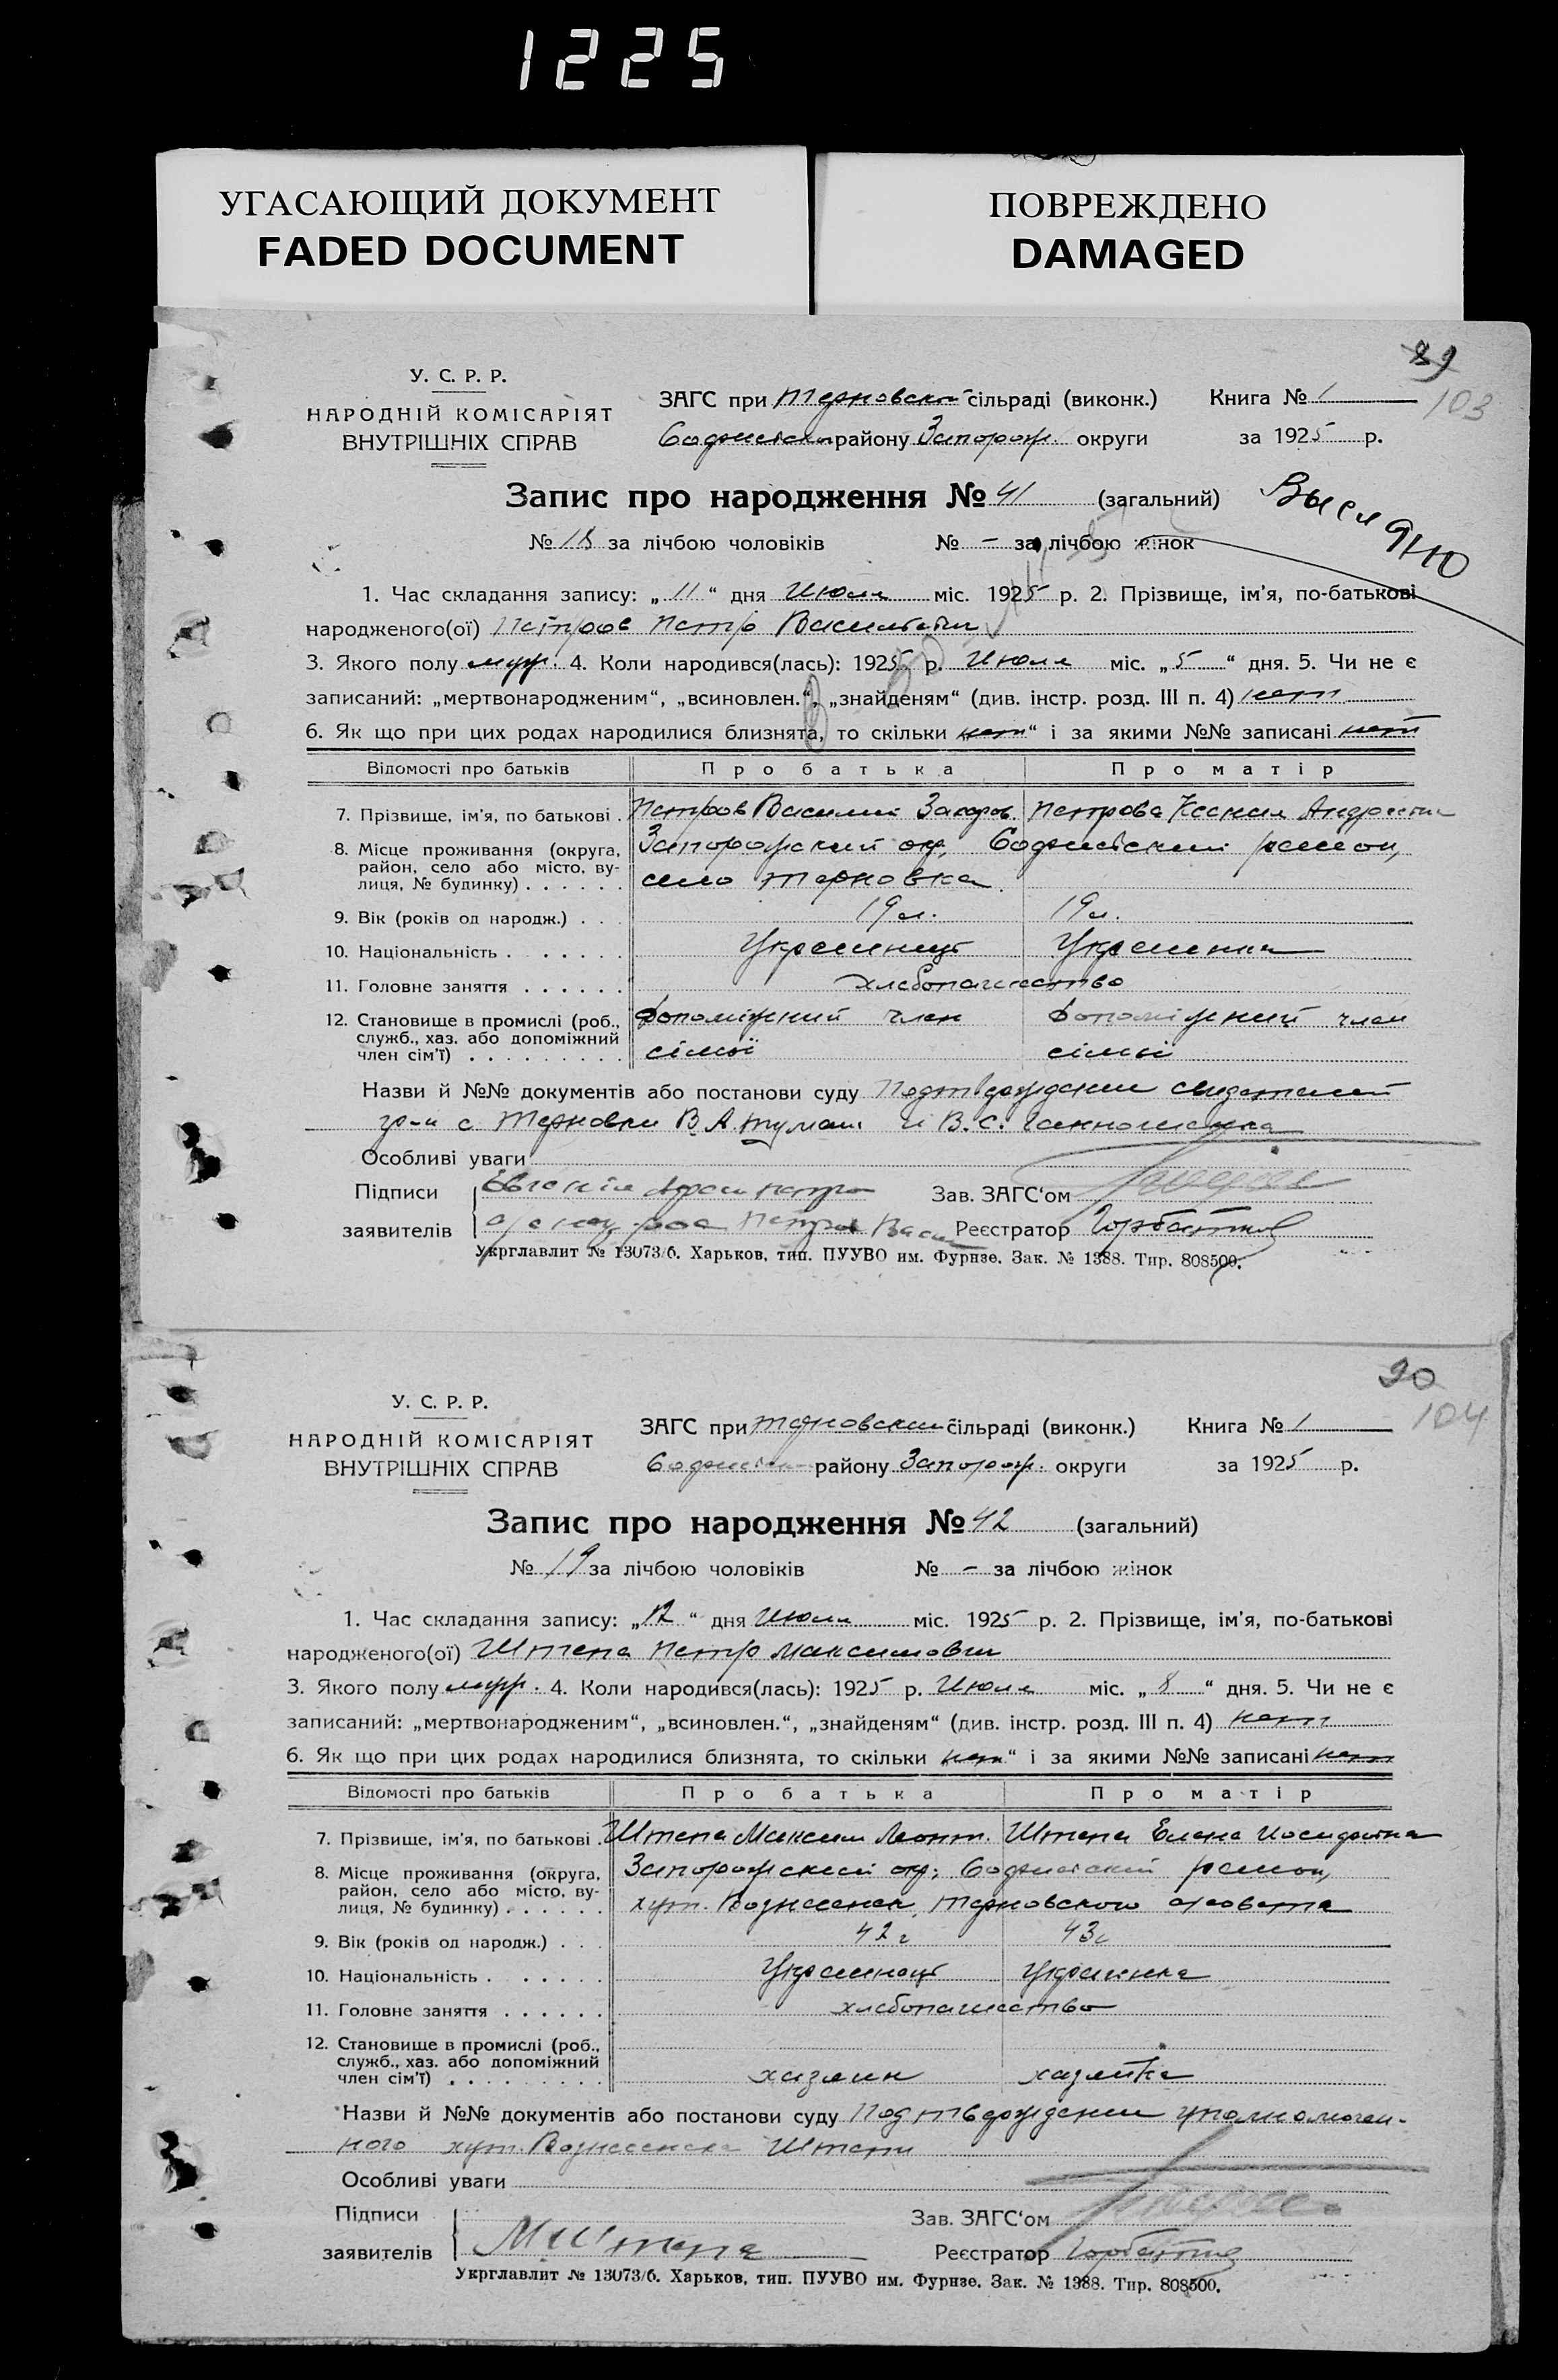 1225
УГАСАЮЩИЙ ДОКУМЕНТ
FADED DOCUMENT
ПОВРЕЖДЕНО
DAMAGED
89
103
У. С. Р. Р.
НАРОДНІЙ КОМІСАРІЯТ
ВНУТРІШНІХ СПРАВ
ЗАГС при Терновской сільраді (виконк.) Книга № 1
району Запорож. округи за 1925 р.
Запис про народження № 41 (загальний)
№ 18 за лічбою чоловіків № – за лічбою жінок
1. Час складання запису: „11“ дня Июля міс. 1925 р. 2. Прізвище, ім'я, по-батькові
народженого(ої) Петров Петр Васильевич
3. Якого полу муж. 4. Коли народився(лась): 1925 р. Июля міс. „5“ дня. 5. Чи не є
записаний: „мертвонародженим“, „всиновлен.“, „знайденям“ (див. інстр. розд. III п. 4) нет
6. Як що при цих родах народилися близнята, то скільки нет“ і за якими №№ записані нет
Відомості про батьків Про батька Про матір
7. Прізвище, ім'я, по батькові . Петров Василий Захаров. Петрова Ксения Андреевна
8. Місце проживання (округа, Запорожский окр, район,
район, село або місто, ву-
лиця, № будинку) . . . . . . село Терновка
9. Вік (років од народж.) . . . 19 л. 19 л.
10. Національність . . . . . . Украинец Украинка
11. Головне заняття . . . . . . хлебопашество
12. Становище в промислі (роб., допоміжний член допоміжний член
служб., хаз. або допоміжний
член сім'ї) . . . . . . . . . сімьї сімьї
Назви й №№ документів або постанови суду Подтверждении свидетелей
гр-н с. Терновки В. А. и В. С.
Особливі уваги
Підписи Зав. ЗАГС‘ом
заявителів Петров Реєстратор
Укрглавлит № 13073/6. Харьков, тип. ПУУВО им. Фрунзе. Зак. № 1388. Тир. 808500.
90
104
У. С. Р. Р.
НАРОДНІЙ КОМІСАРІЯТ
ВНУТРІШНІХ СПРАВ
ЗАГС при Терновский сільраді (виконк.) Книга № 1
району Запорож. округи за 1925 р.
Запис про народження № 42 (загальний)
№ 19 за лічбою чоловіків № – за лічбою жінок
1. Час складання запису: „12“ дня Июля міс. 1925 р. 2. Прізвище, ім'я, по-батькові
народженого(ої) Штепа Петр Максимович
3. Якого полу муж. 4. Коли народився(лась): 1925 р. Июля міс. „8“ дня. 5. Чи не є
записаний: „мертвонародженим“, „всиновлен.“, „знайденям“ (див. інстр. розд. III п. 4) нет
6. Як що при цих родах народилися близнята, то скільки нет“ і за якими №№ записані нет
Відомості про батьків Про батька Про матір
7. Прізвище, ім'я, по батькові . Штепа Максим Леонт. Штепа Елена
8. Місце проживання (округа, Запорожский окр; район,
район, село або місто, ву-
лиця, № будинку) . . . . . . хут. Вознесенск, Терновского с/совета
9. Вік (років од народж.) . . . 42 г 43 г
10. Національність . . . . . . Украинец Украинка
11. Головне заняття . . . . . . хлебопашество
12. Становище в промислі (роб.,
служб., хаз. або допоміжний
член сім'ї) . . . . . . . . . хазяин хазяйка
Назви й №№ документів або постанови суду Подтверждении уполномочен-
ного хут. Вознесенска Штепи
Особливі уваги
Підписи Зав. ЗАГС‘ом
заявителів М Штепа Реєстратор
Укрглавлит № 13073/6. Харьков, тип. ПУУВО им. Фрунзе. Зак. № 1388. Тир. 808500.